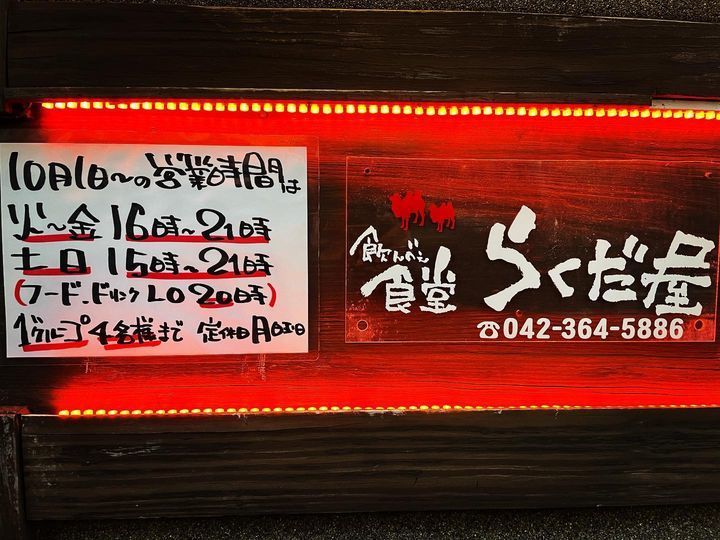 10月1日〜の営業時間は
火〜金 16時〜21時
土日 15時〜21時
(フード.ドリンク LO 20時)
1グループ4名様まで 定休日月曜日
飲んべゑ
食堂 らくだ屋
☎042-364-5886